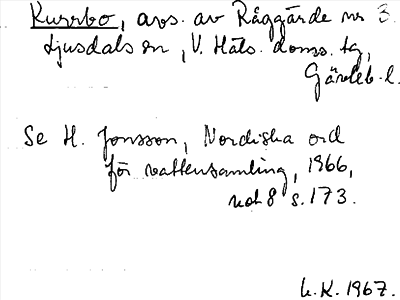 Kurrbo, avs. av Råggärde nr 3.
Ljusdals sn, V. Häls. doms. tg,
Gävleb. l.
Se H. Jonsson, Nordiska ord
för vattensamling, 1966,
not 8 s. 173.
L. K. 1967.